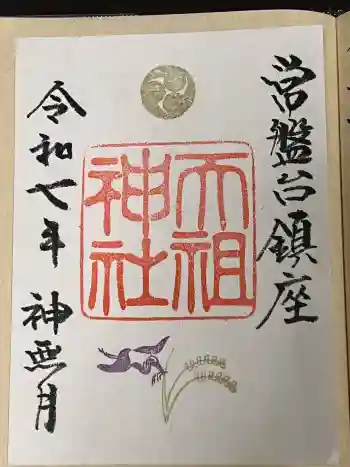 常盤台鎮座
天祖
神社
令和七年
神無月